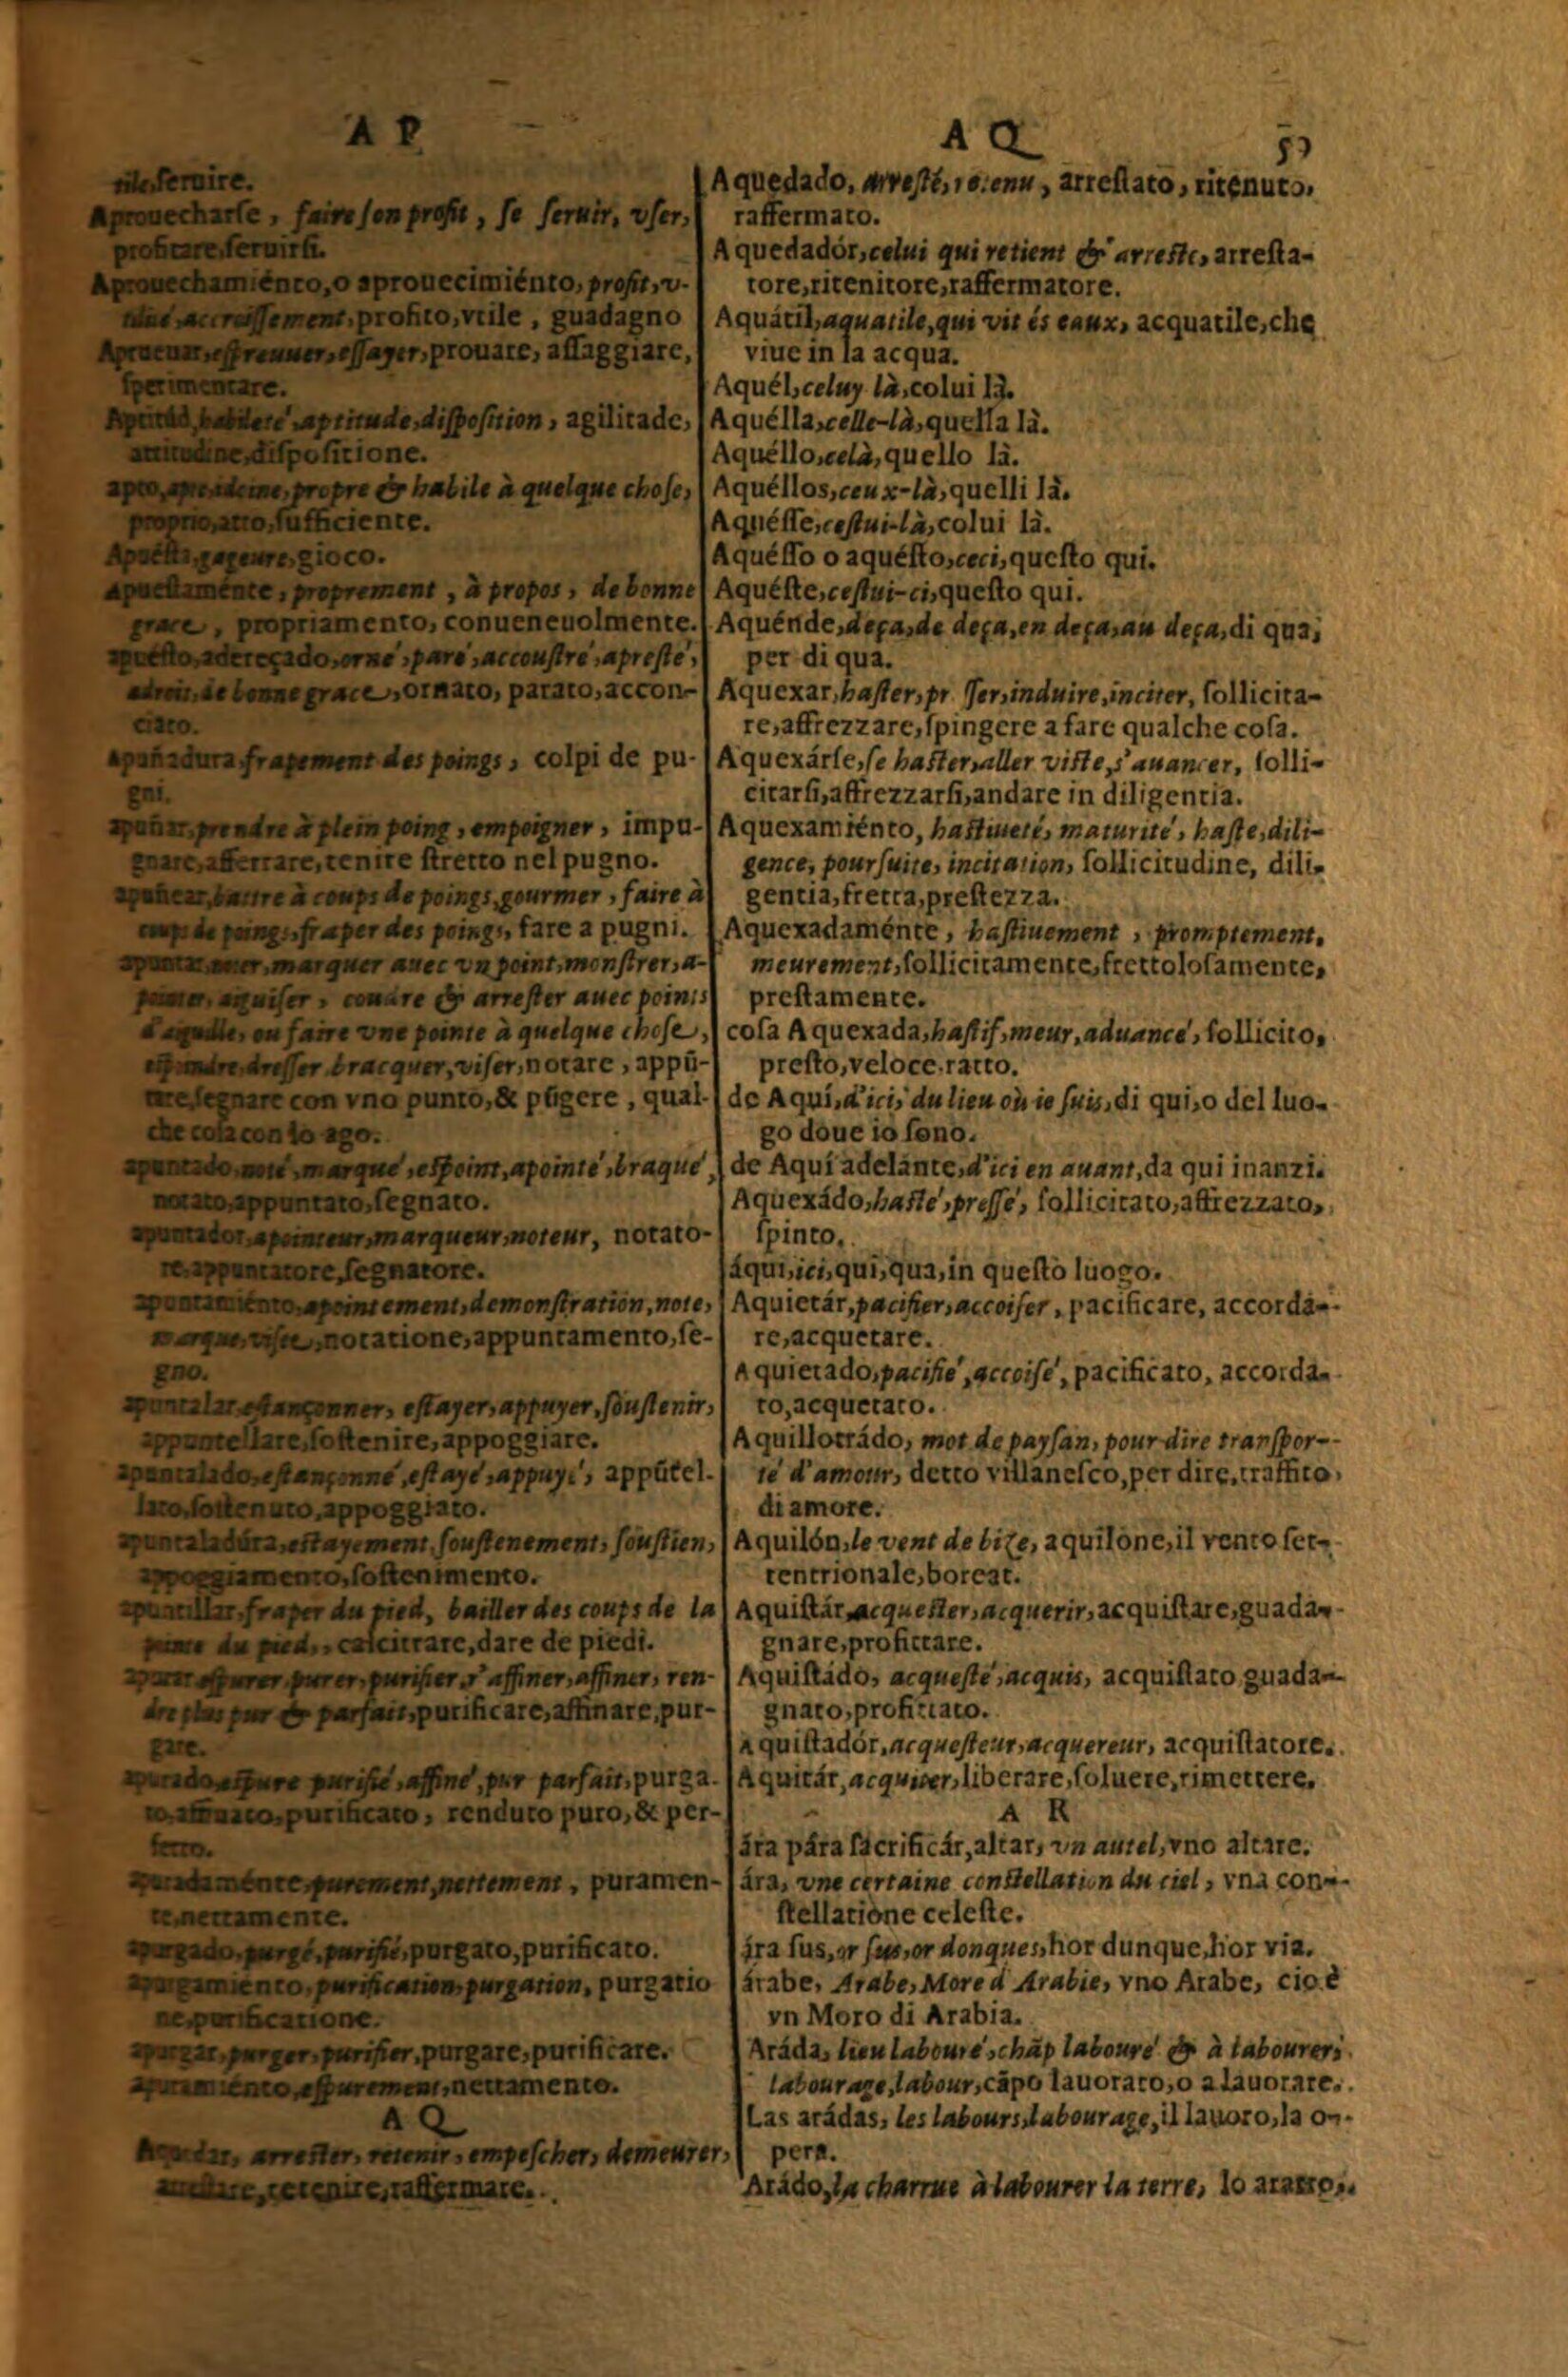 A P
A Q
tile, seruire.
Aprouecharse, faire son profit, se seruir, vser,
profitare, seruirsi.
Aprouechamiénto, o aprouecimiénto, profit, v-
accroissement, profito, vtile, guadagno
essayer, prouare, assaggiare,
sperimentare.
aptitude, disposition, agilitade,
attitudine, dispositione.
apto, propre & habile à quelque chose,
proprio, atto, sufficiente.
Apuésta, gageure, gioco.
apuestaménte, proprement, à propos, de bonne
grace, propriamento, conueneuolmente.
apuésto, adereçado, orné, paré, accoustré, apresté,
adroit, de bonne grace, ornato, parato, accon-
ciato.
apuñadura frapement des poings, colpi de pu-
gni.
apuñar, prendre à plein poing, empoigner, impu-
gnare, afferrare, tenire stretto nel pugno.
apuñear, battre à coups de poings, gourmer, faire à
coups de poings, fraper des poings, fare a pugni.
apuntar, noter, marquer auec vn point, monstrer, a-
pointer, aiguiser, coudre & arrester auec points
d'aguille, ou faire vne pointe à quelque chose,
dresser bracquer, viser, notare, appũ-
tare, segnare con vno punto, & pũgere, qual-
che cosa con lo ago.
apuntado, noté, marqué, espoint, apointé, braqué,
notato, appuntato, segnato.
apuntador, apointeur, marqueur, noteur, notato-
re, appuntatore, segnatore.
apuntamiénto, apointement, demonstration, note,
marque, visee, notatione, appuntamento, se-
gno.
apuntalar, estançonner, estayer, appuyer, soustenir,
appuntellare, sostenire, appoggiare.
apuntalado, estançonné, estayé, appuyé, appũtel-
lato, sostenuto, appoggiato.
apuntaladúra, estayement, soustenement, soustien,
appoggiamento, sostenimento.
apuntillar, fraper du pied, bailler des coups de la
pointe du pied, calcitrare, dare de piedi.
apurar espurer, purer, purifier, s'affiner, affiner, ren-
dre plus pur & parfait, purificare, affinare, pur-
gare.
apurado, espure purifié, affiné, pur parfait, purga-
to, affinato, purificato, renduto puro, & per-
fetto.
apuradaménte, purement, nettement, puramen-
te, nettamente.
apurgado, purgé, purifié, purgato, purificato.
apurgamiento, purification, purgation, purgatio
ne, purificatione.
apurgar, purger, purifier, purgare, purificare.
apuramiénto, espurement, nettamento.
A Q
Aquedar, arrester, retenir, empescher, demeurer,
arrestare, retenire, raffermare.
Aquedado, arresté, retenu, arrestato, ritenuto,
raffermato.
Aquedadór, celui qui retient & arreste, arresta-
tore, ritenitore, raffermatore.
Aquátil, aquatile, qui vit és eaux, acquatile, che
viue in la acqua.
Aquél, celuy là, colui là.
Aquélla, celle-là, quella là.
Aquéllo, celà, quello là.
Aquéllos, ceux-là, quelli là.
Aquésse, cestui-là, colui là.
Aquésso o aquésto, ceci, questo qui.
Aquéste, cestui-ci, questo qui.
Aquénde, deça, de deça, en deça, au deça, di qua,
per di qua.
Aquexar, haster, pr sser, induire, inciter, sollicita-
re, affrezzare, spingere a fare qualche cosa.
Aquexárse, se haster, aller viste, s'auancer, solli-
citarsi, affrezzarsi, andare in diligentia.
Aquexamiénto, hastiueté, maturité, haste, dili-
gence, poursuite, incitation, sollicitudine, dili-
gentia, fretta, prestezza.
Aquexadaménte, hastiuement, promptement,
meurement, sollicitamente, frettolosamente,
prestamente.
cosa Aquexada, hastif, meur, aduancé, sollicito,
presto, veloce, ratto.
de Aquí, d'ici, du lieu où ie suis, di qui, o del luo-
go doue io sono.
de Aquí adelánte, d'ici en auant, da qui inanzi.
Aquexádo, hasté, pressé, sollicitato, affrezzato,
spinto.
áqui, ici, qui, qua, in questo luogo.
Aquietár, pacifier, accoiser, pacificare, accorda-
re, acquetare.
Aquietado, pacifié, accoisé, pacificato, accorda-
to, acquetato.
Aquillotrádo, mot de paysan, pour dire transpor-
té d'amour, detto villanesco, per dire, traffito
di amore.
Aquilón, le vent de bize, aquilone, il vento set-
tentrionale, boreat.
Aquistár, acquester, acquerir, acquistare, guada-
gnare, profittare.
Aquistádo, acquesté, acquis, acquistato guada-
gnato, profittato.
Aquistadór, acquesteur, acquereur, acquistatore.
Aquitár, acquiter, liberare, soluere, rimettere.
A R
ára pára sacrificár, altar, vn autel, vno altare.
ára, vne certaine constellation du ciel, vna con-
stellatione celeste.
ára sus, or sus, or donques, hor dunque, hor via.
árabe, Arabe, More d'Arabie, vno Arabe, cio è
vn Moro di Arabia.
Aráda, lieu labouré, chãp labouré & à labourer,
labourage, labour, cãpo lauorato, o a lauorare.
Las arádas, les labours, labourage, il lauoro, la o-
pera.
Arádo, la charrue à labourer la terre, lo aratro,